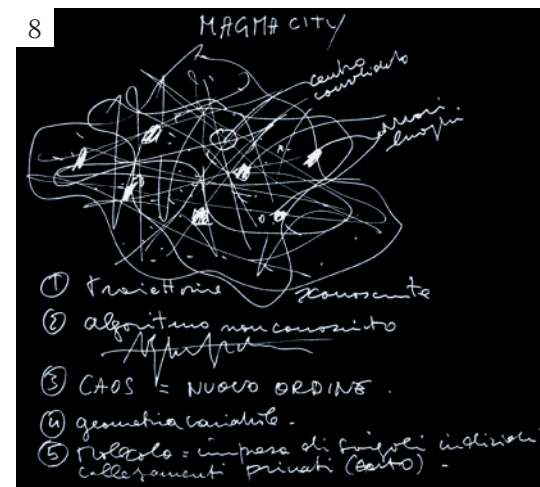 8
MAGMA CITY
centro
consolidato
nuovi
luoghi
① traiettorie sconosciute
② algoritmo non conosciuto
③ CAOS = NUOVO ORDINE.
④ geometria variabile.
⑤ molecola = impresa di singoli individui
collegamenti privati (auto).